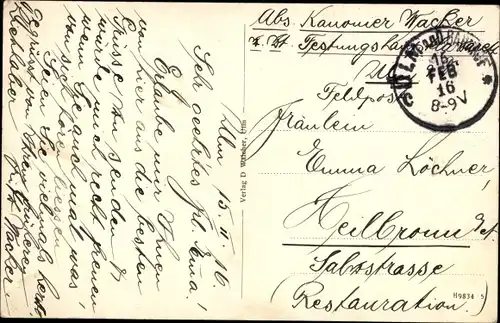 Ulm 15. II. 16
Sehr geehrtes Frl. Emma!
Erlaube mir Ihnen
von hier aus die besten
Grüsse zu senden &
würde mich recht freuen
wenn Sie auch mal was
von sich hören liessen.
Seien Sie vielmals herzl.
gegrüsst von Ihrem
Wacker.
Verlag D.
Abs. Kanonier Wacker
z. Zt. Festungs
Ulm
Feldpost
ULM
BAHNHOF
15.
FEB
16
8-9V
Fräulein
Emma Löchner,
Heilbronn a/N
Salzstrasse
(Restauration.)
H9834 5